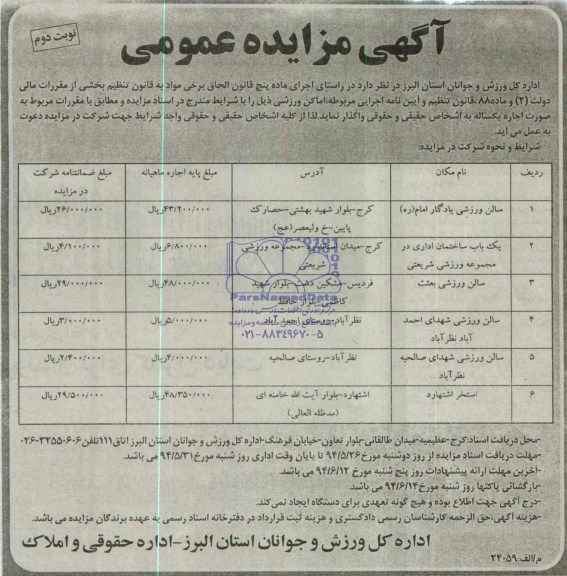 نوبت دوم
آگهی مزایده عمومی
اداره کل ورزش و جوانان استان البرز در نظر دارد در راستای اجرای ماده پنج قانون الحاق برخی مواد به قانون تنظیم بخشی از مقررات مالی
دولت (۲) و ماده۸۸ ،قانون تنظیم و آیین نامه اجرایی مربوطه،اماکن ورزشی ذیل را با شرایط مندرج در اسناد مزایده و مطابق با مقررات مربوط به
صورت اجاره یکساله به اشخاص حقیقی و حقوقی واگذار نماید.لذا از کلیه اشخاص حقیقی و حقوقی واجد شرایط جهت شرکت در مزایده دعوت
به عمل می اید.
شرایط و نحوه شرکت در مزایده:
ردیف نام مکان آدرس مبلغ پایه اجاره ماهیانه مبلغ ضمانتنامه شرکت
در مزایده
۱ سالن ورزشی یادگار امام(ره) کرج-بلوار شهید بهشتی-حصارک ۴۳/۲۰۰/۰۰۰ریال ۲۶/۰۰۰/۰۰۰ریال
پایین-خ ولیعصر(عج)
۲ یک باب ساختمان اداری در کرج-میدان -مجموعه ورزشی ۶/۸۰۰/۰۰۰ریال ۴/۱۰۰/۰۰۰ریال
مجموعه ورزشی شریعتی شریعتی
۳ سالن ورزشی بعثت فردیس-مشکین دشت-بلوار شهید ۴۸/۰۰۰/۰۰۰ریال ۲۹/۰۰۰/۰۰۰ریال
کاظمی-بلوار حافظ
ParsNamadData
۴ سالن ورزشی شهدای احمد نظرآباد-روستای احمد آباد ۵/۰۰۰/۰۰۰ریال ۳/۰۰۰/۰۰۰ریال
آباد نظرآباد
۰۲۱-۸۸۳۴۹۶۷۰-۵
۵ سالن ورزشی شهدای صالحیه نظرآباد-روستای صالحیه ۴/۰۰۰/۰۰۰ریال ۲/۴۰۰/۰۰۰ریال
نظرآباد
۶ استخر اشتهارد اشتهارد-بلوار آیت الله خامنه ای ۴۸/۳۵۰/۰۰۰ریال ۲۹/۵۰۰/۰۰۰ریال
(مدظله العالی)
-محل دریافت اسناد:کرج-عظیمیه-میدان طالقانی-بلوار تعاون-خیابان فرهنگ-اداره کل ورزش و جوانان استان البرز اتاق۱۱۱تلفن۳۲۵۵۰۶۰۶-۰۲۶
-مهلت دریافت اسناد مزایده از روز دوشنبه مورخ۹۴/۵/۲۶ تا پایان وقت اداری روز شنبه مورخ۹۴/۵/۳۱ می باشد.
-اخرین مهلت ارائه پیشنهادات روز پنج شنبه مورخ ۹۴/۶/۱۲ می باشد.
-بازگشائی پاکتها روز شنبه مورخ۹۴/۶/۱۴ می باشد.
-درج آگهی جهت اطلاع بوده و هیچ گونه تعهدی برای دستگاه ایجاد نمی‌کند.
-هزینه آگهی،حق الزحمه کارشناسان رسمی دادگستری و هزینه ثبت قرارداد در دفترخانه اسناد رسمی به عهده برندگان مزایده می باشد.
اداره کل ورزش و جوانان استان البرز-اداره حقوقی و املاک
م/الف:۲۴۰۵۹